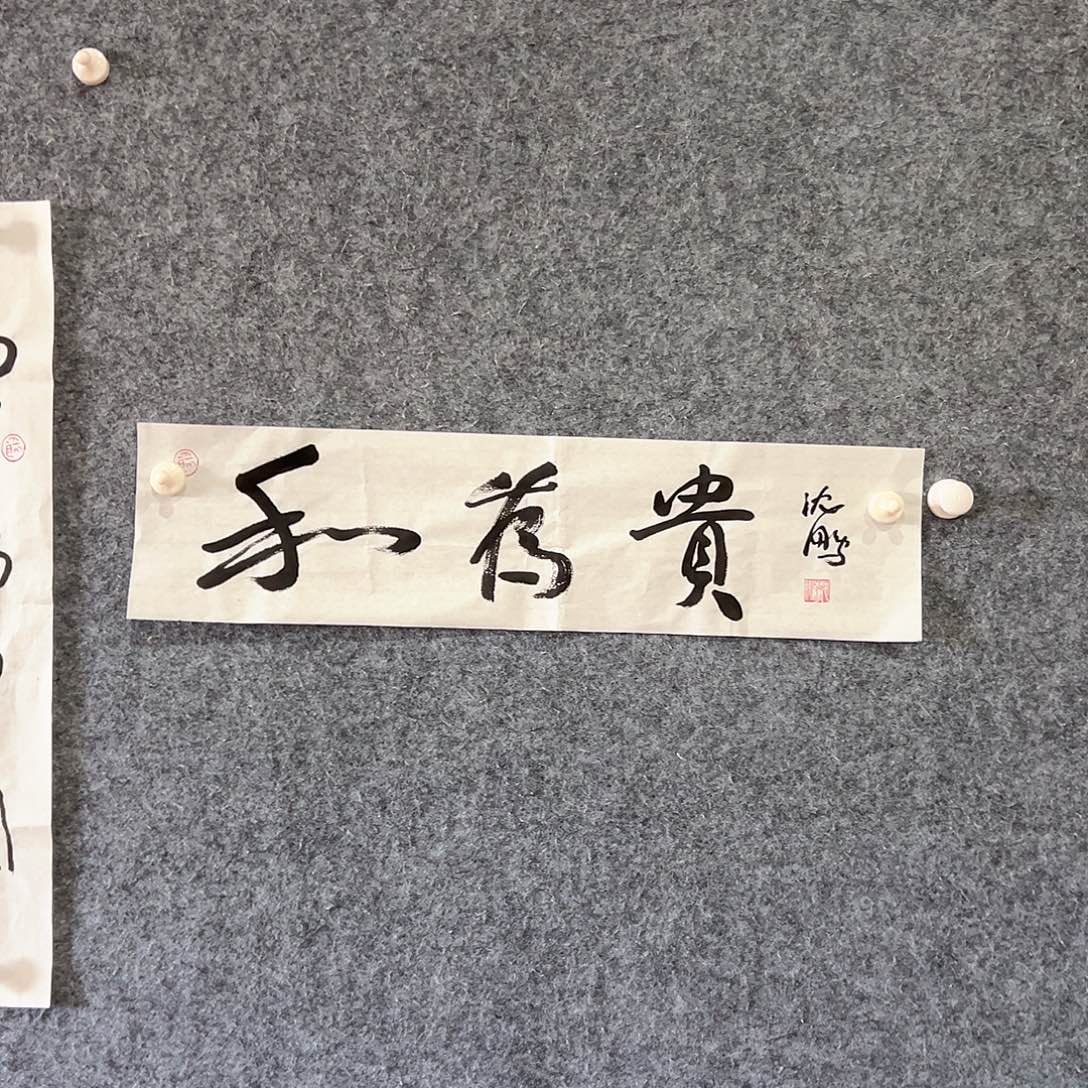 和為貴
沈鵬